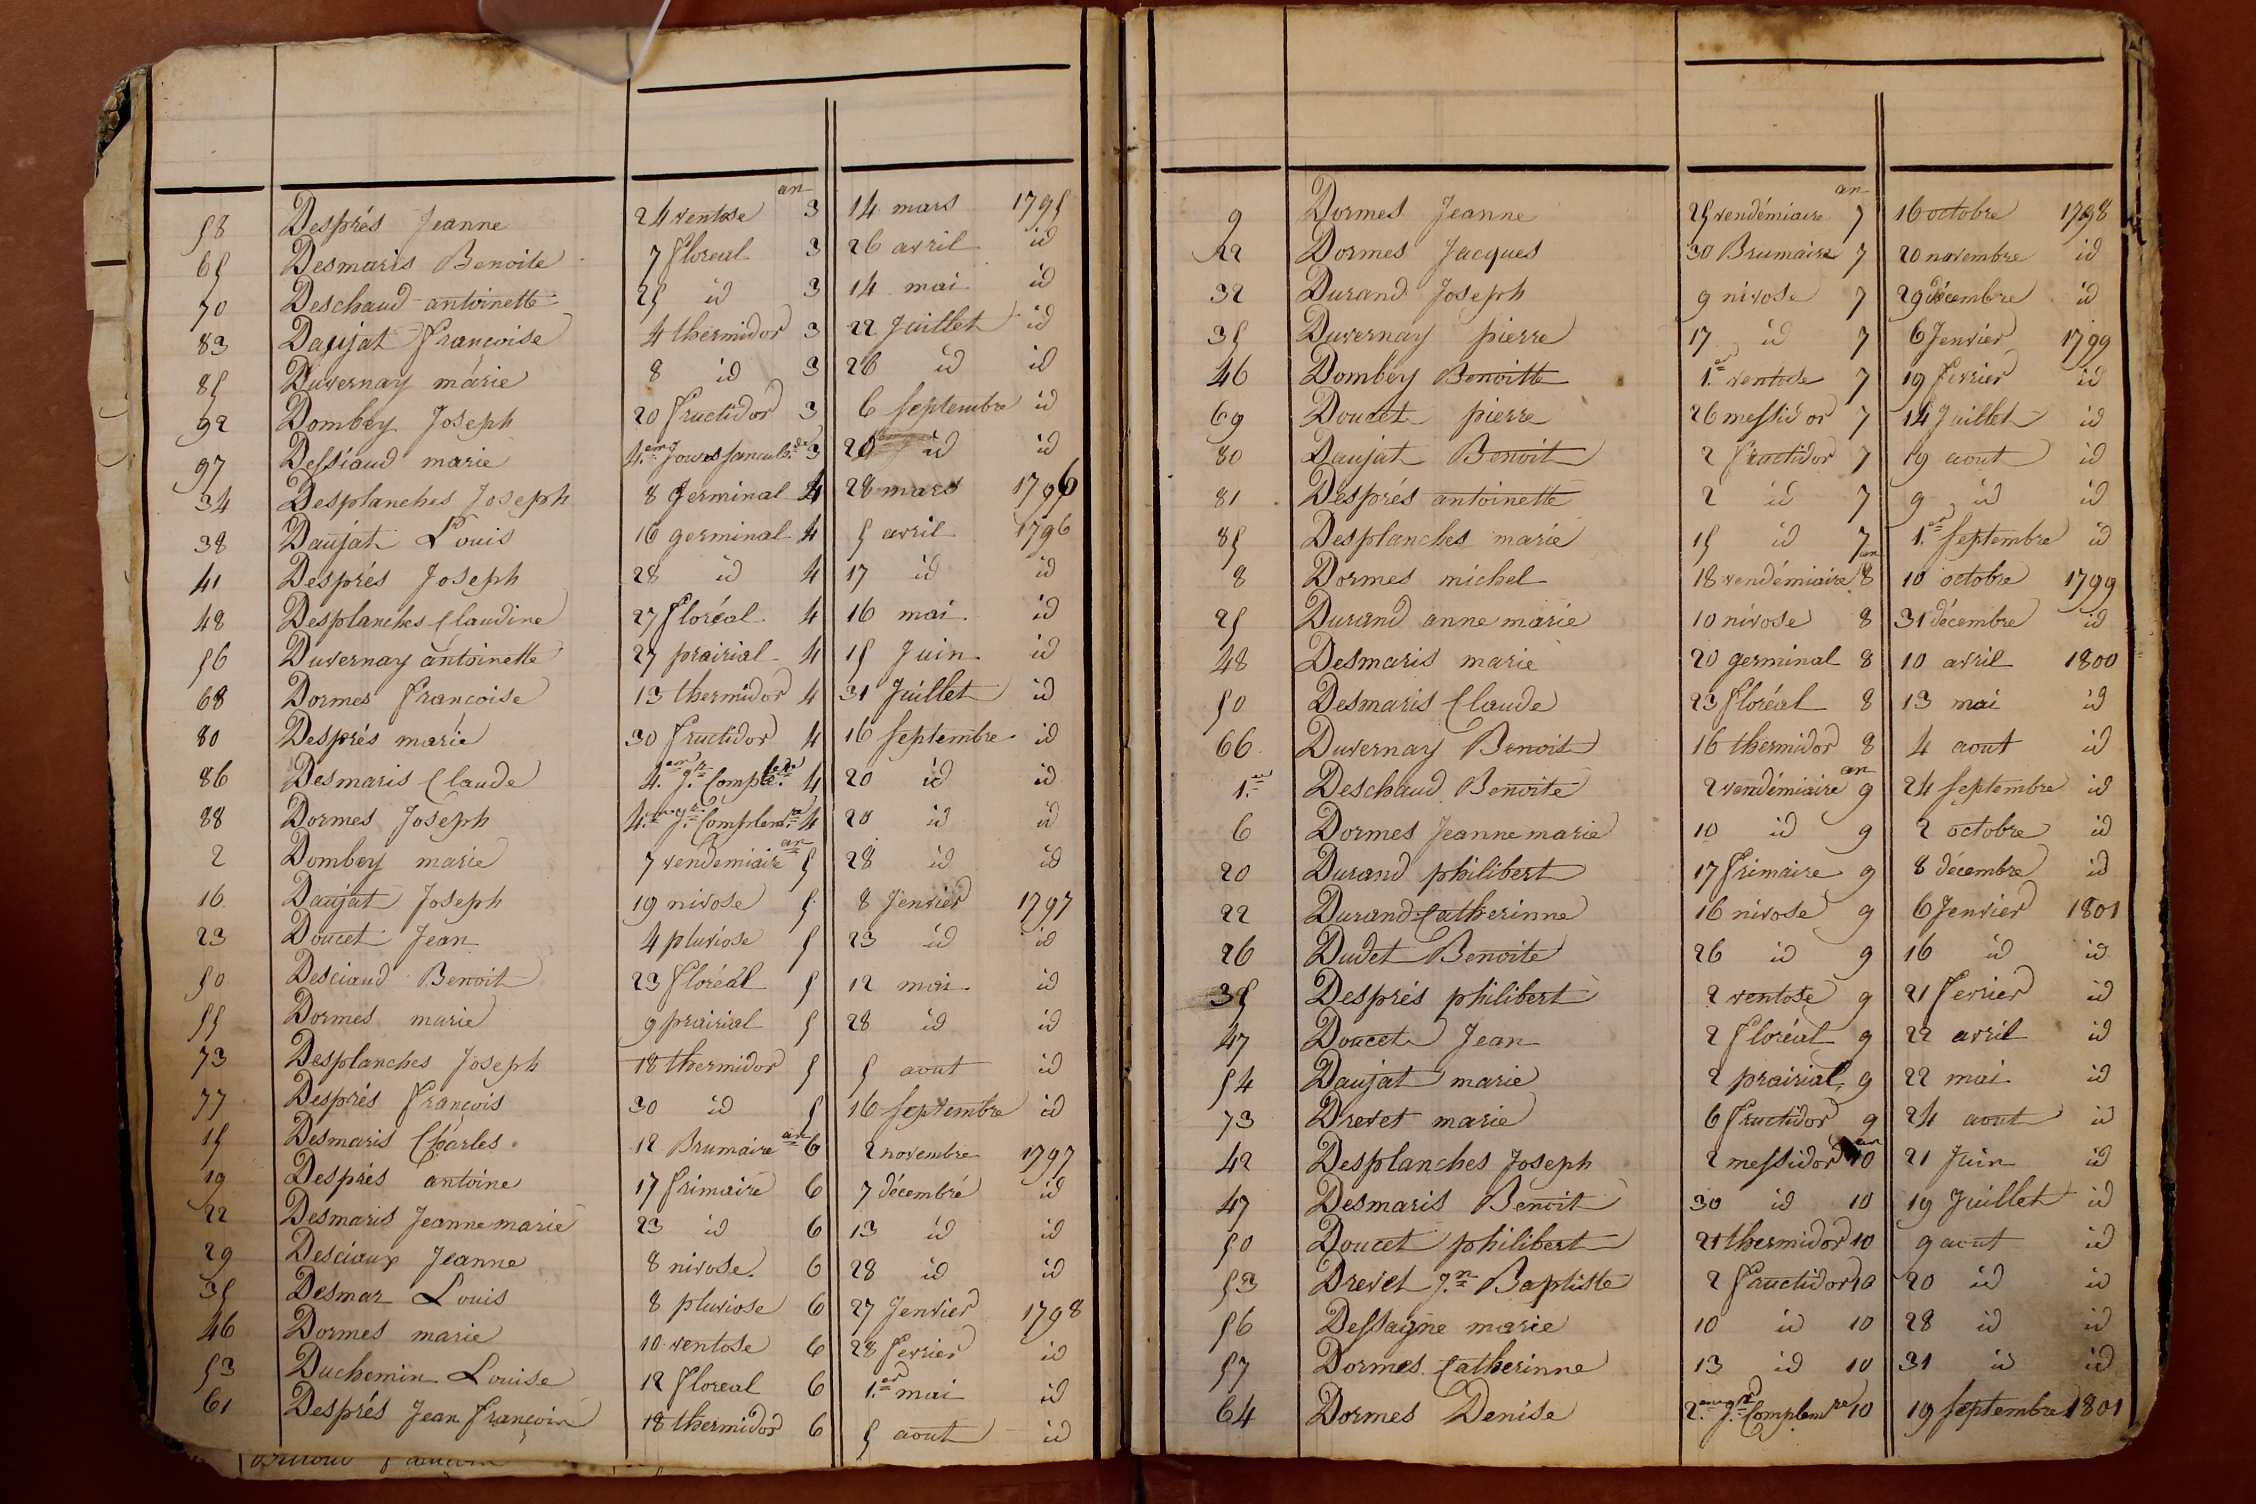 58 Després Jeanne 24 ventose an 3 14 mars 1795
65 Desmaris Benoite 7 floreal 3 26 avril id
70 Deschaud antoinette 25 id 3 14 mai id
83 Daujat Francoise 4 thermidor 3 22 Juillet id
85 Duvernay marie 8 id 3 26 id id
92 Dombey Joseph 20 fructidor 3 6 septembre id
97 Dessiaud marie 4.eme Jours sancul.de 3 20 id id
34 Desplanches Joseph 8 germinal 4 28 mars 1796
38 Daujat Louis 16 germinal 4 5 avril 1796
41 Després Joseph 28 id 4 17 id id
48 Desplanches Claudine 27 floréal 4 16 mai id
56 Duvernay antoinette 27 prairial 4 15 Juin id
68 Dormes francoise 13 thermidor 4 31 Juillet id
80 Després marie 30 fructidor 4 16 septembre id
86 Desmaris Claude 4.eme J.r Comple. 4 20 id id
88 Dormes Joseph 4.eme J.r Complem.re 4 20 id id
2 Dombey marie 7 vendemiaire an 5 28 id id
16 Daujat Joseph 19 nivose 5 8 Jenvier 1797
23 Doucet Jean 4 pluviose 5 23 id id
50 Desciaud Benoit 23 floréal 5 12 mai id
55 Dormes marie 9 prairial 5 28 id id
73 Desplanches Joseph 18 thermidor 5 5 aout id
77 Després francois 30 id 5 16 septembre id
15 Desmaris Charles 12 Brumaire an 6 2 novembre 1797
19 Desprès antoine 17 frimaire 6 7 décembre id
22 Desmaris Jeanne marie 23 id 6 13 id id
29 Desciaux Jeanne 8 nivose. 6 28 id id
35 Desmar Louis 8 pluviose 6 27 Jenvier 1798
46 Dormes marie 10 ventose 6 28 fevrier id
53 Duchemin Louise 12 floreal 6 1.er mai id
61 Després Jean françois 18 thermidor 6 5 aout id
9 Dormes Jeanne 25 vendémiaire an 7 16 octobre 1798
22 Dormes Jacques 30 Brumaire 7 20 novembre id
32 Durand Joseph 9 nivose 7 29 décembre id
35 Duvernay pierre 17 id 7 6 Jenvier 1799
46 Dombéy Benoitte 1.er ventose 7 19 fevrier id
69 Doucet pierre 26 messidor 7 14 Juillet id
80 Daujat Benoit 2 fructidor 7 19 aout id
81 Després antoinette 2 id 7 9 id id
85 Desplanches marie 15 id 7 1.er septembre id
8 Dormes michel 18 vendémiaire an 8 10 octobre 1799
25 Durand anne marie 10 nivose 8 31 décembre id
48 Desmaris marie 20 germinal 8 10 avril 1800
50 Desmaris Claude 23 floréal 8 13 mai id
66 Duvernay Benoit 16 thermidor 8 4 aout id
1.er Deschaud Benoite 2 vendémiaire an 9 24 septembre id
6 Dormes Jeanne marie 10 id 9 2 octobre id
20 Durand philibert 17 frimaire 9 8 décembre id
22 Durand Catherinne 16 nivose 9 6 Jenvier 1801
26 Dudet Benoite 26 id 9 16 id id
35 Després philibert 2 ventose 9 21 fevrier id
47 Doucet Jean 2 floréal 9 22 avril id
54 Daujat marie 2 prairial 9 22 mai id
73 Drevet marie 6 fructidor 9 24 aout id
42 Desplanches Joseph 2 messidor an 10 21 Juin id
47 Desmaris Benoit 30 id 10 19 Juillet id
50 Doucet philibert 21 thermidor 10 9 aout id
53 Drevet J.n Baptiste 2 fructidor 10 20 id id
56 Dessaigne marie 10 id 10 28 id id
57 Dormes Catherinne 13 id 10 31 id id
64 Dormes Denise 2.eme J.r Complem.re 10 19 septembre 1801